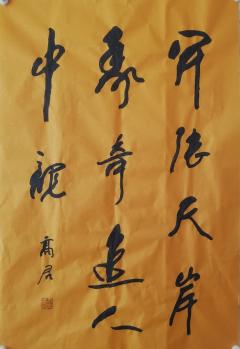 開張天岸
馬奇逸人
中龍